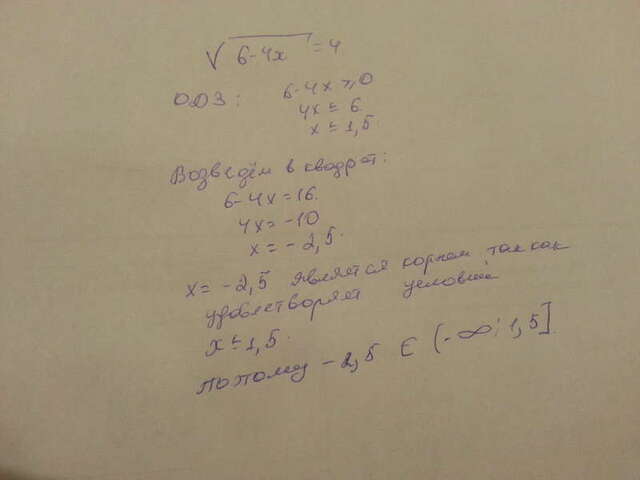 √6-4x = 4
ОДЗ: 6-4x ≥ 0
4x ≤ 6
x ≤ 1,5.
Возведём в квадрат:
6-4x = 16.
4x = -10
x = -2,5.
x = -2,5 является корнем, так как
удовлетворяет условию
x ≤ 1,5.
потому -2,5 ∈ (-∞; 1,5]